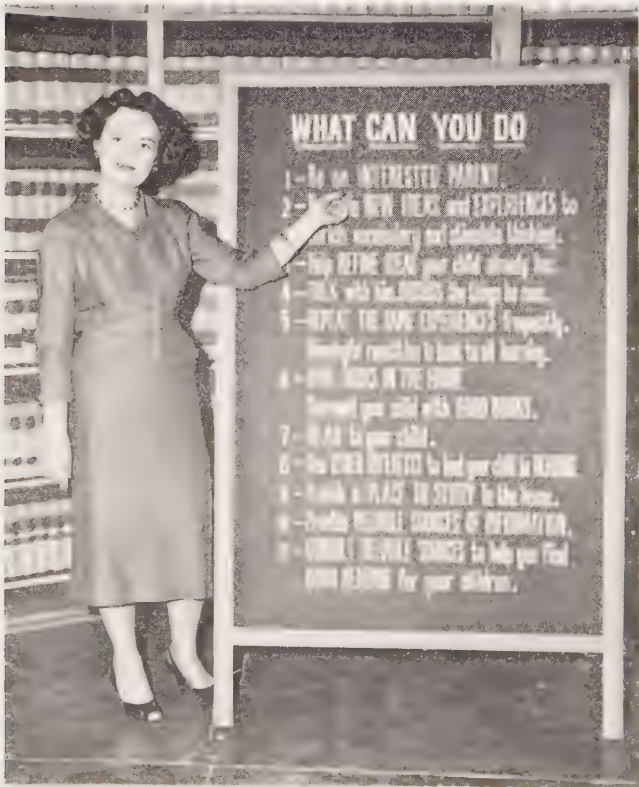 WHAT CAN YOU DO
1 - Be an INTERESTED PARENT.
2 - NEW IDEAS and EXPERIENCES to
vocabulary and stimulate thinking.
- Help REFINE IDEAS your child already has.
4 - TALK with him the things he sees.
5 - REPEAT THE SAME EXPERIENCES frequently.
repetition is basic to all learning.
BOOKS IN THE HOME
Surround your child with GOOD BOOKS.
7 - READ to your child.
8 - Use OTHER INTERESTS to lead your child to READING
- Provide a PLACE TO STUDY in the home.
- Provide RELIABLE SOURCES OF INFORMATION.
- RELIABLE SOURCES to help you find
GOOD READING for your children.